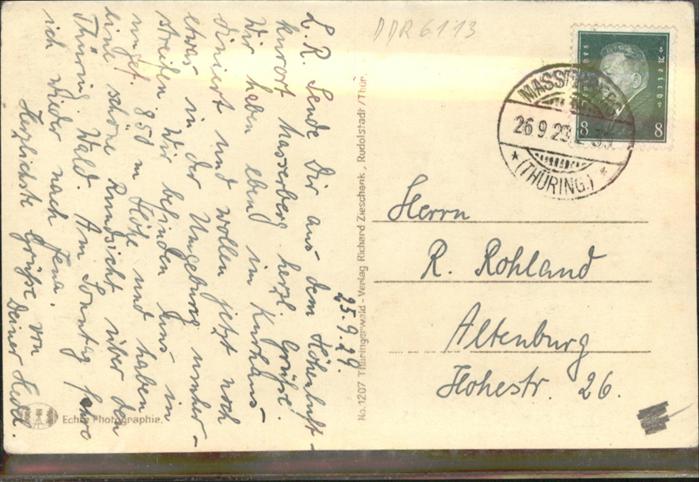 DDR 6113
25.9.29.
L. R. Sende Dir aus dem Höhenluft-
kurort Masserberg herzl. Grüße.
Wir haben eben im Kurhaus
diniert und wollen jetzt noch
etwas in der Umgebung umher-
streifen. Wir befinden uns in
ungef. 850 m Höhe und haben
eine schöne Rundsicht über den
Thüring. Wald. Am Sonntag
ich wieder nach Jena.
Herzlichste Grüße von
Deiner
Echte Photographie.
No. 1207 Thüringerwald - Verlag Richard Zieschank, Rudolstadt/Thür.
8 8
MASSERBERG
26.9.29
* (THÜRING.) *
Herrn
R. Rohland
Altenburg
Hohestr. 26.